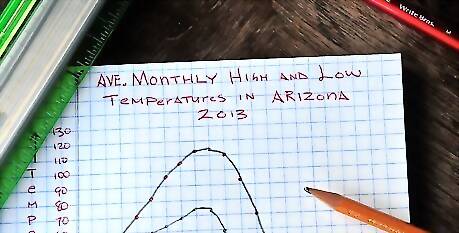 AVE. MONTHLY HIGH AND LOW
TEMPERATURES IN ARIZONA
2013
130
120
110
100
90
80
70
T
e
M
P
Write Bros.